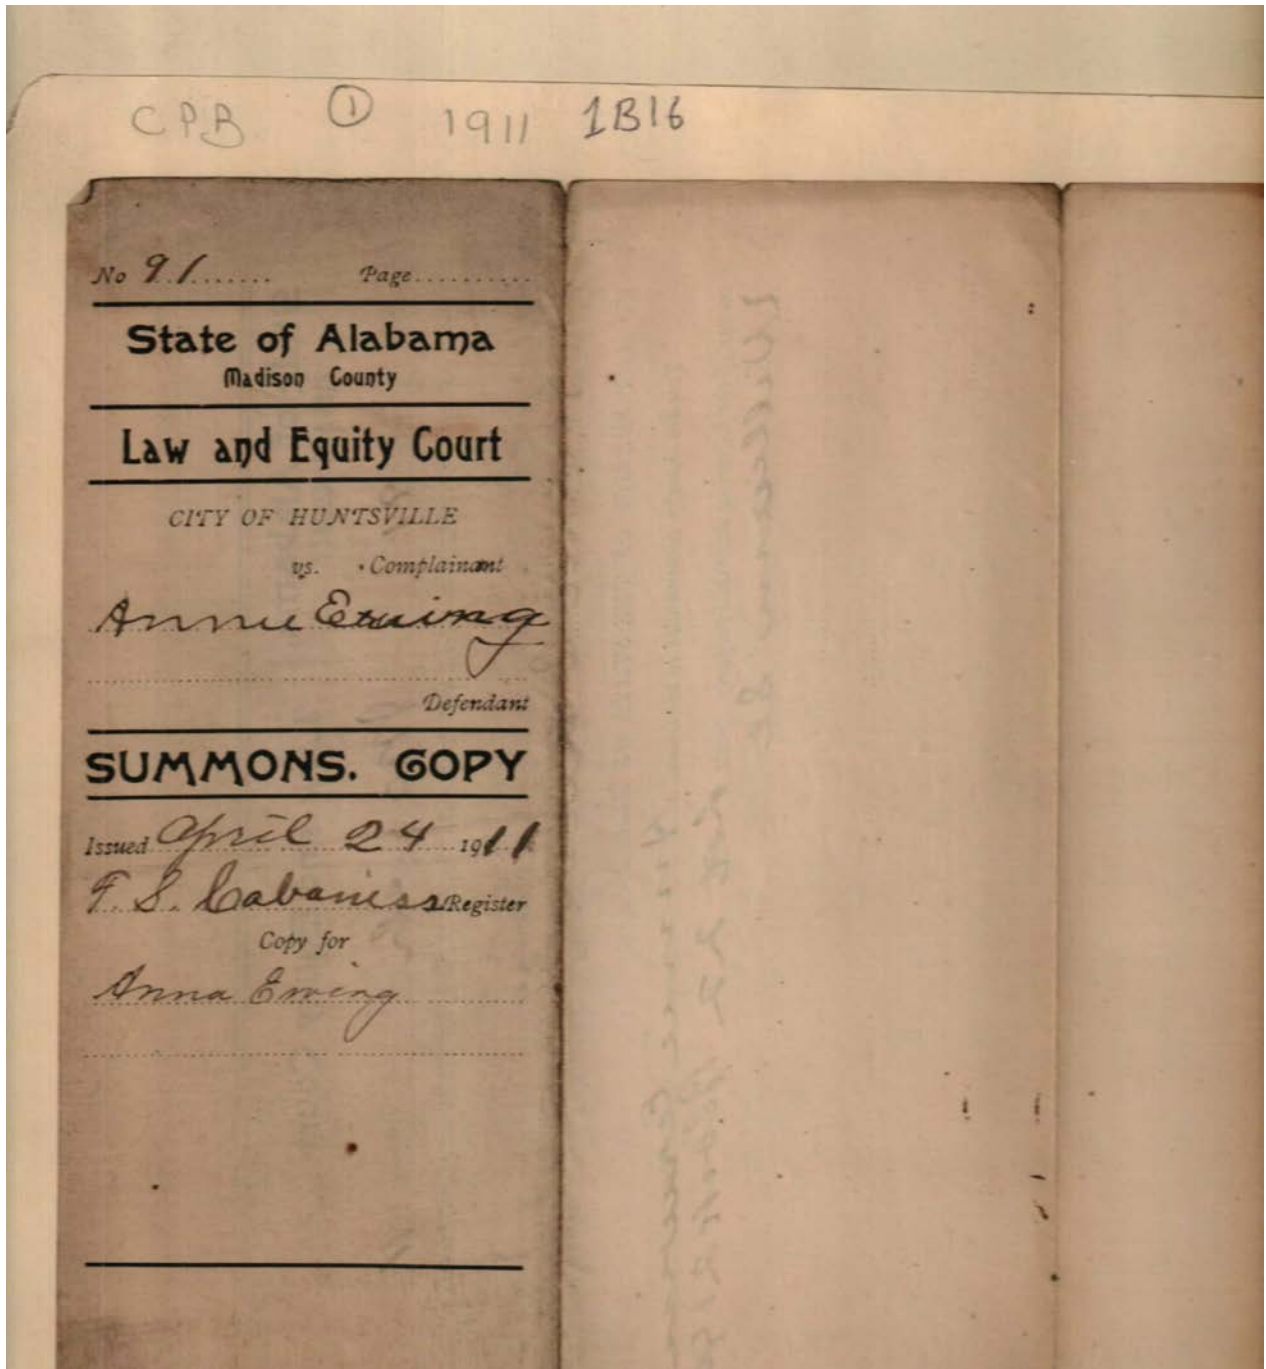 CPB ① 1911 1B16
No 91 Page
State of Alabama
Madison County
Law and Equity Court
CITY OF HUNTSVILLE
vs. Complainant
Annie Ewing
Defendant
SUMMONS. COPY
Issued April 24 1911
F. S. Cabaniss Register
Copy for
Anna Ewing